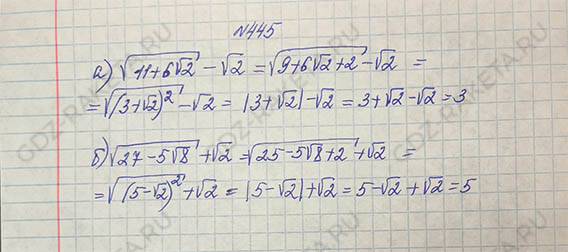 №445
а) √(11+6√2) - √2 = √(9+6√2+2) - √2 =
= √((3+√2)²) - √2 = |3+√2| - √2 = 3+√2-√2 = 3
б) √(27-5√8) + √2 = √(25-5√8+2) + √2 =
= √((5-√2)²) + √2 = |5-√2| + √2 = 5-√2+√2 = 5
GDZ-RAKETA.RU